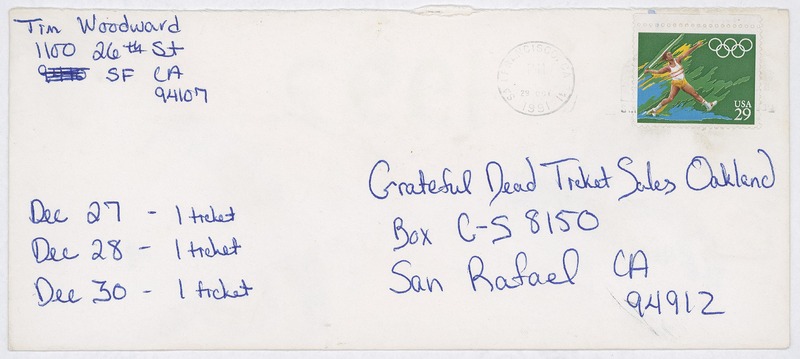 Tim Woodward
1100 26th St
SF CA
94107
SAN FRANCISCO, CA
1991
USA
29
Grateful Dead Ticket Sales Oakland
Box C-S 8150
San Rafael CA
94912
Dec 27 - 1 ticket
Dec 28 - 1 ticket
Dec 30 - 1 ticket